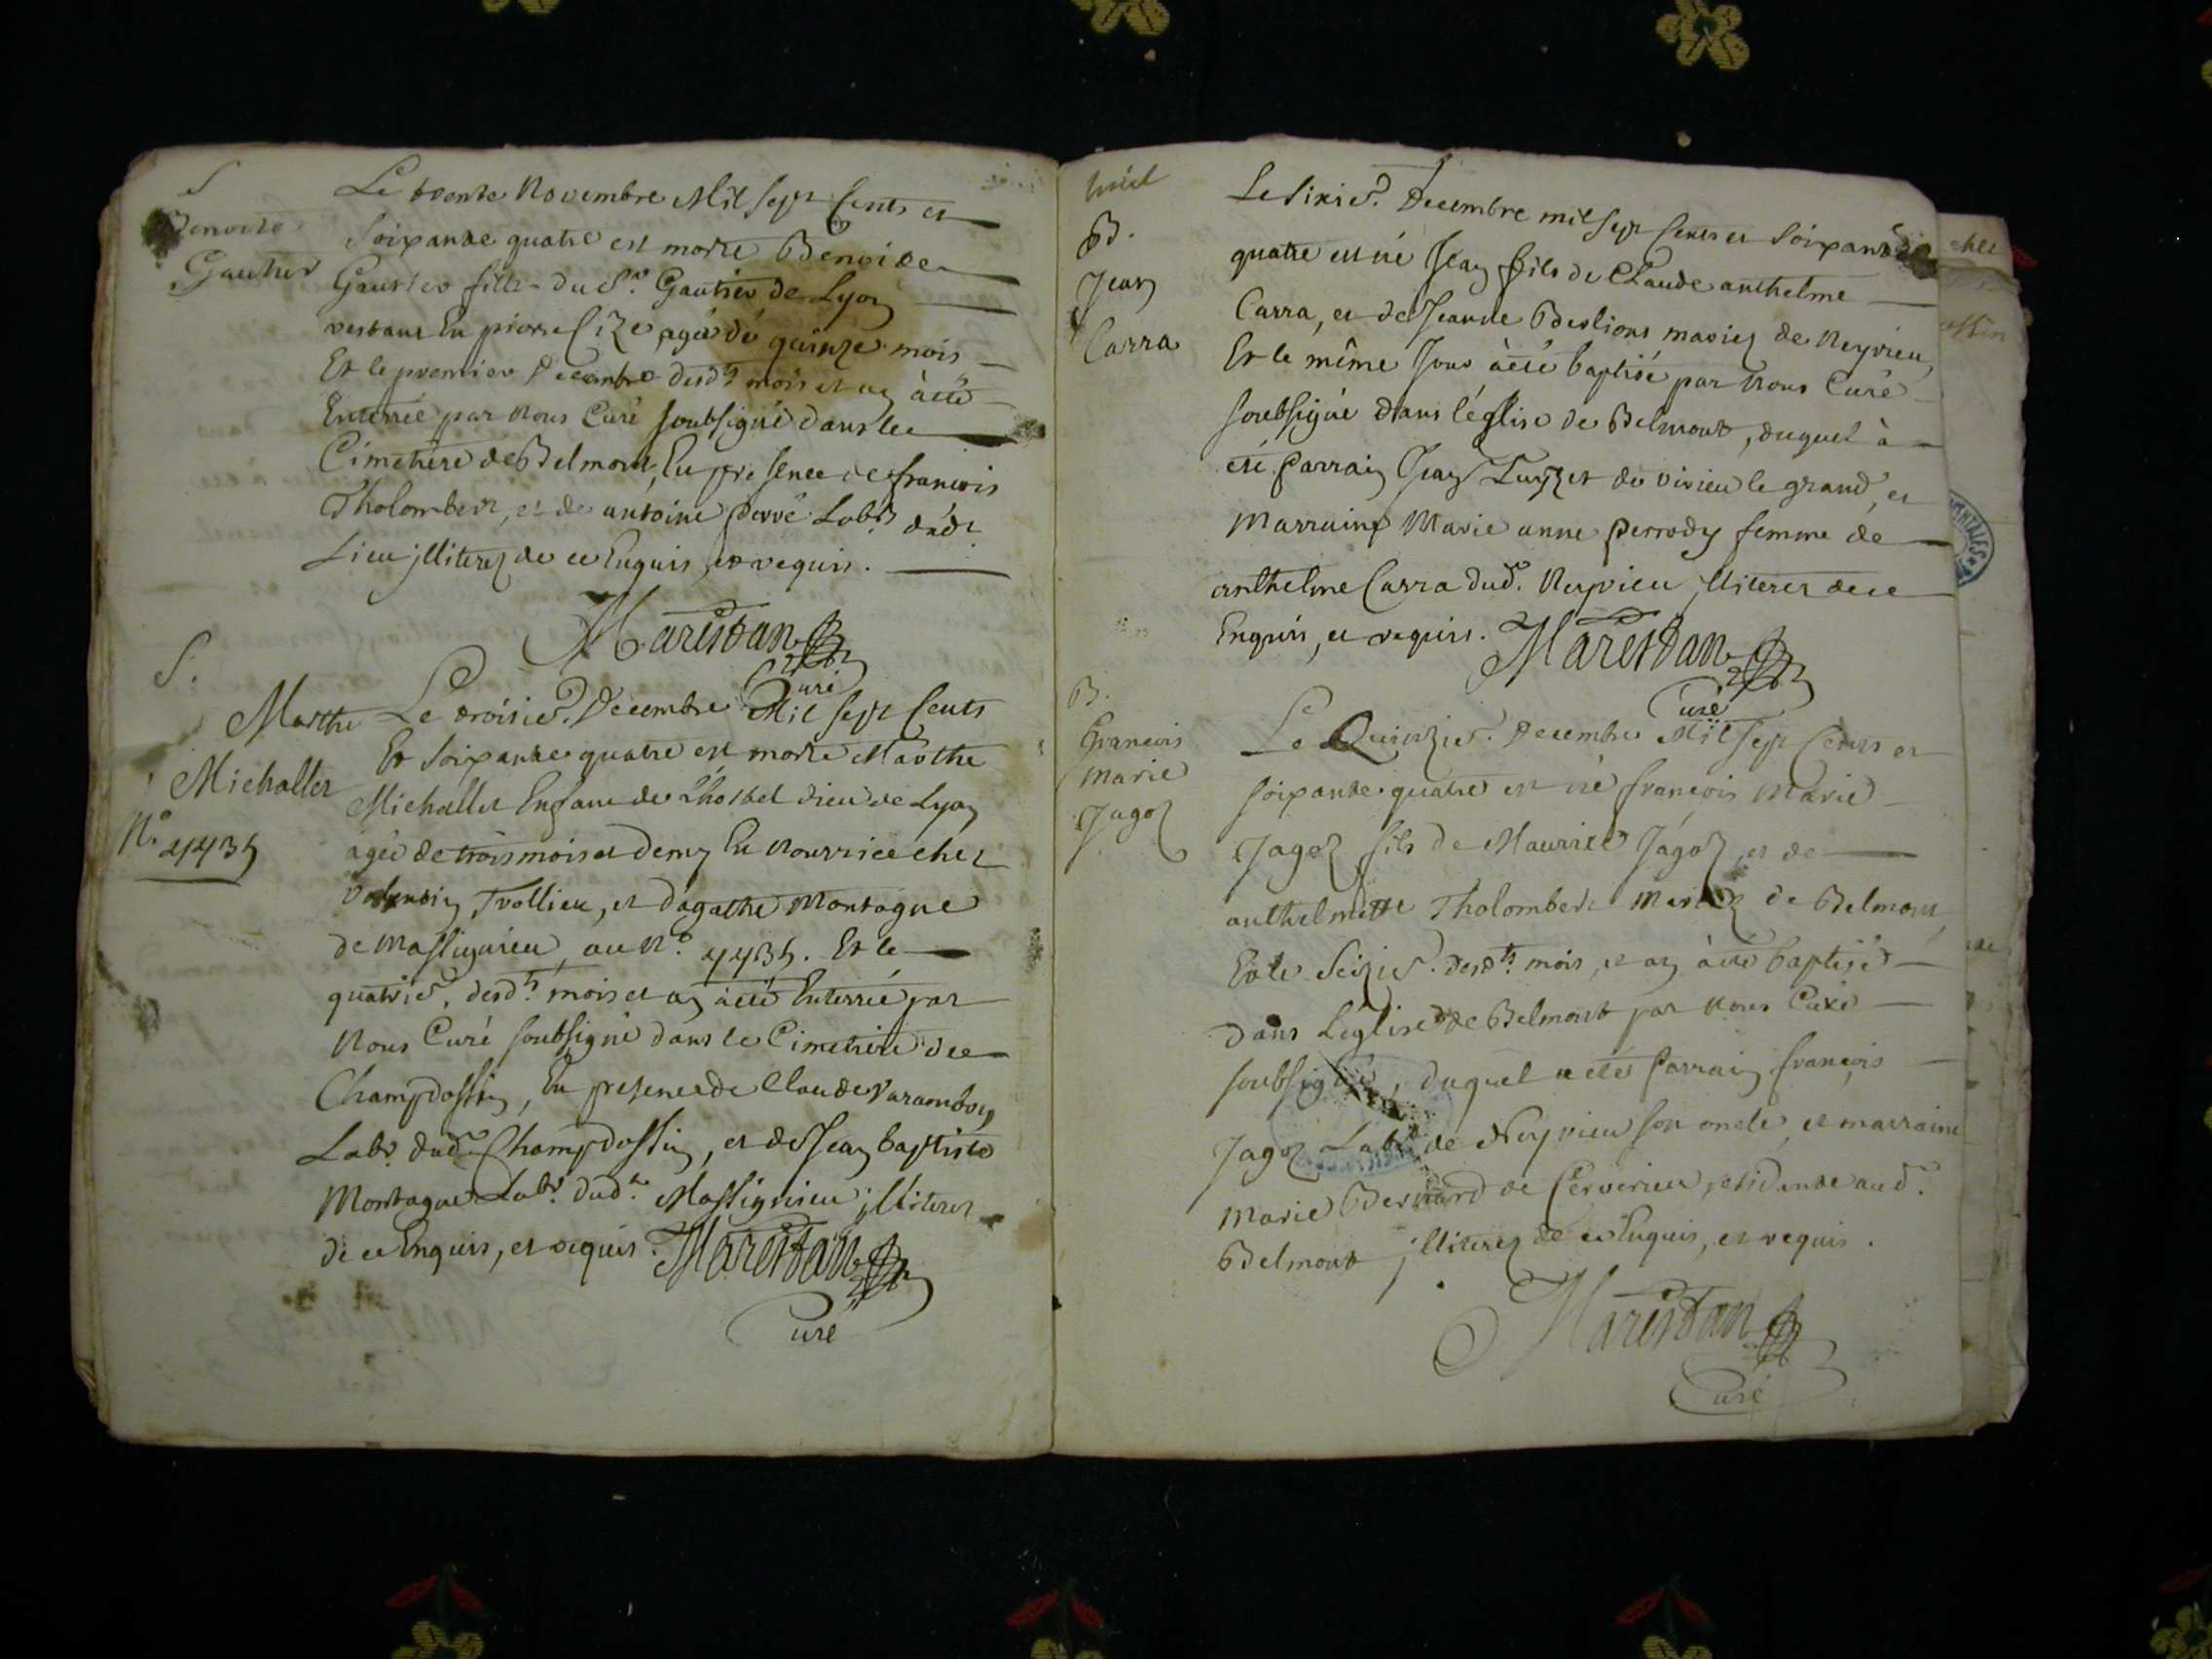 S
Benoite
Gautier
Le trente Novembre Mil sept Cents et
Soixante quatre est morte Benoide
Gautier fille du Sr. Gautier de Lyon
restant En pierre Cize agée de quinze mois
Et le premier Decembre desdts mois et an à été
Enterrée par Nous Curé soubsigné dans le
Cimetiere de Belmont, En presence de francois
Tholombert, et de antoine perré Labrs dudt
Lieu jlliterez de ce Enquis, et requis.
Marestan
Curé
S.
Marthe
Michallet
No. 4435
Le troisie. Decembre Mil sept Cents
Et Soixante quatre est morte Marthe
Michallet Enfant de L'hostel dieu de Lyon
agée de trois mois et demy En Nourrice chez
Trollieu, et d'agathe Montagne
de Massignieu, au No. 4435. Et le
quatrie. desdts mois et an à été Enterrée par
Nous Curé soubsigné dans le Cimetiere de
Champdossin, En presence de Claude Varambon,
Labr. dud. Champdossin, et de Jean baptiste
Montagne Labr. dudt. Massignieu jlliterez
de ce Enquis, et requis. Marestan
Curé
B.
Jean
Carra
Le Sixie. Decembre mil sept Cents et Soixante
quatre est né Jean fils de Claude anthelme
Carra, et de Jeanne Berlions mariez de Neyrieu,
Et le même Jour à été baptisé par Nous Curé
soubsigné dans l'église de Belmont, duquel à
été Parrain Jean Luyzet de virieu le grand, et
Marraine Marie anne perrody femme de
anthelme Carra dud. Neyrieu jlliterez de ce
Enquis, et requis. Marestan
Curé
B.
Francois
Marie
Jagoz
Le Quinzie. Decembre Mil sept Cents et
soixante quatre est né francois Marie
Jagoz fils de Maurice Jagoz, et de
anthelmette Tholombert Mariez de Belmont,
Et le Seizie. desdts mois, et an à été baptisé
Dans L'eglise de Belmont par Nous Curé
soubsigné, duquel a eté Parrain françois
Jagoz Labr. de Neyrieu son oncle, et marraine
Marie Bernard de Cerverieu, residante aud.
Belmont jlliterez de ce Enquis, et requis.
Marestan
Curé